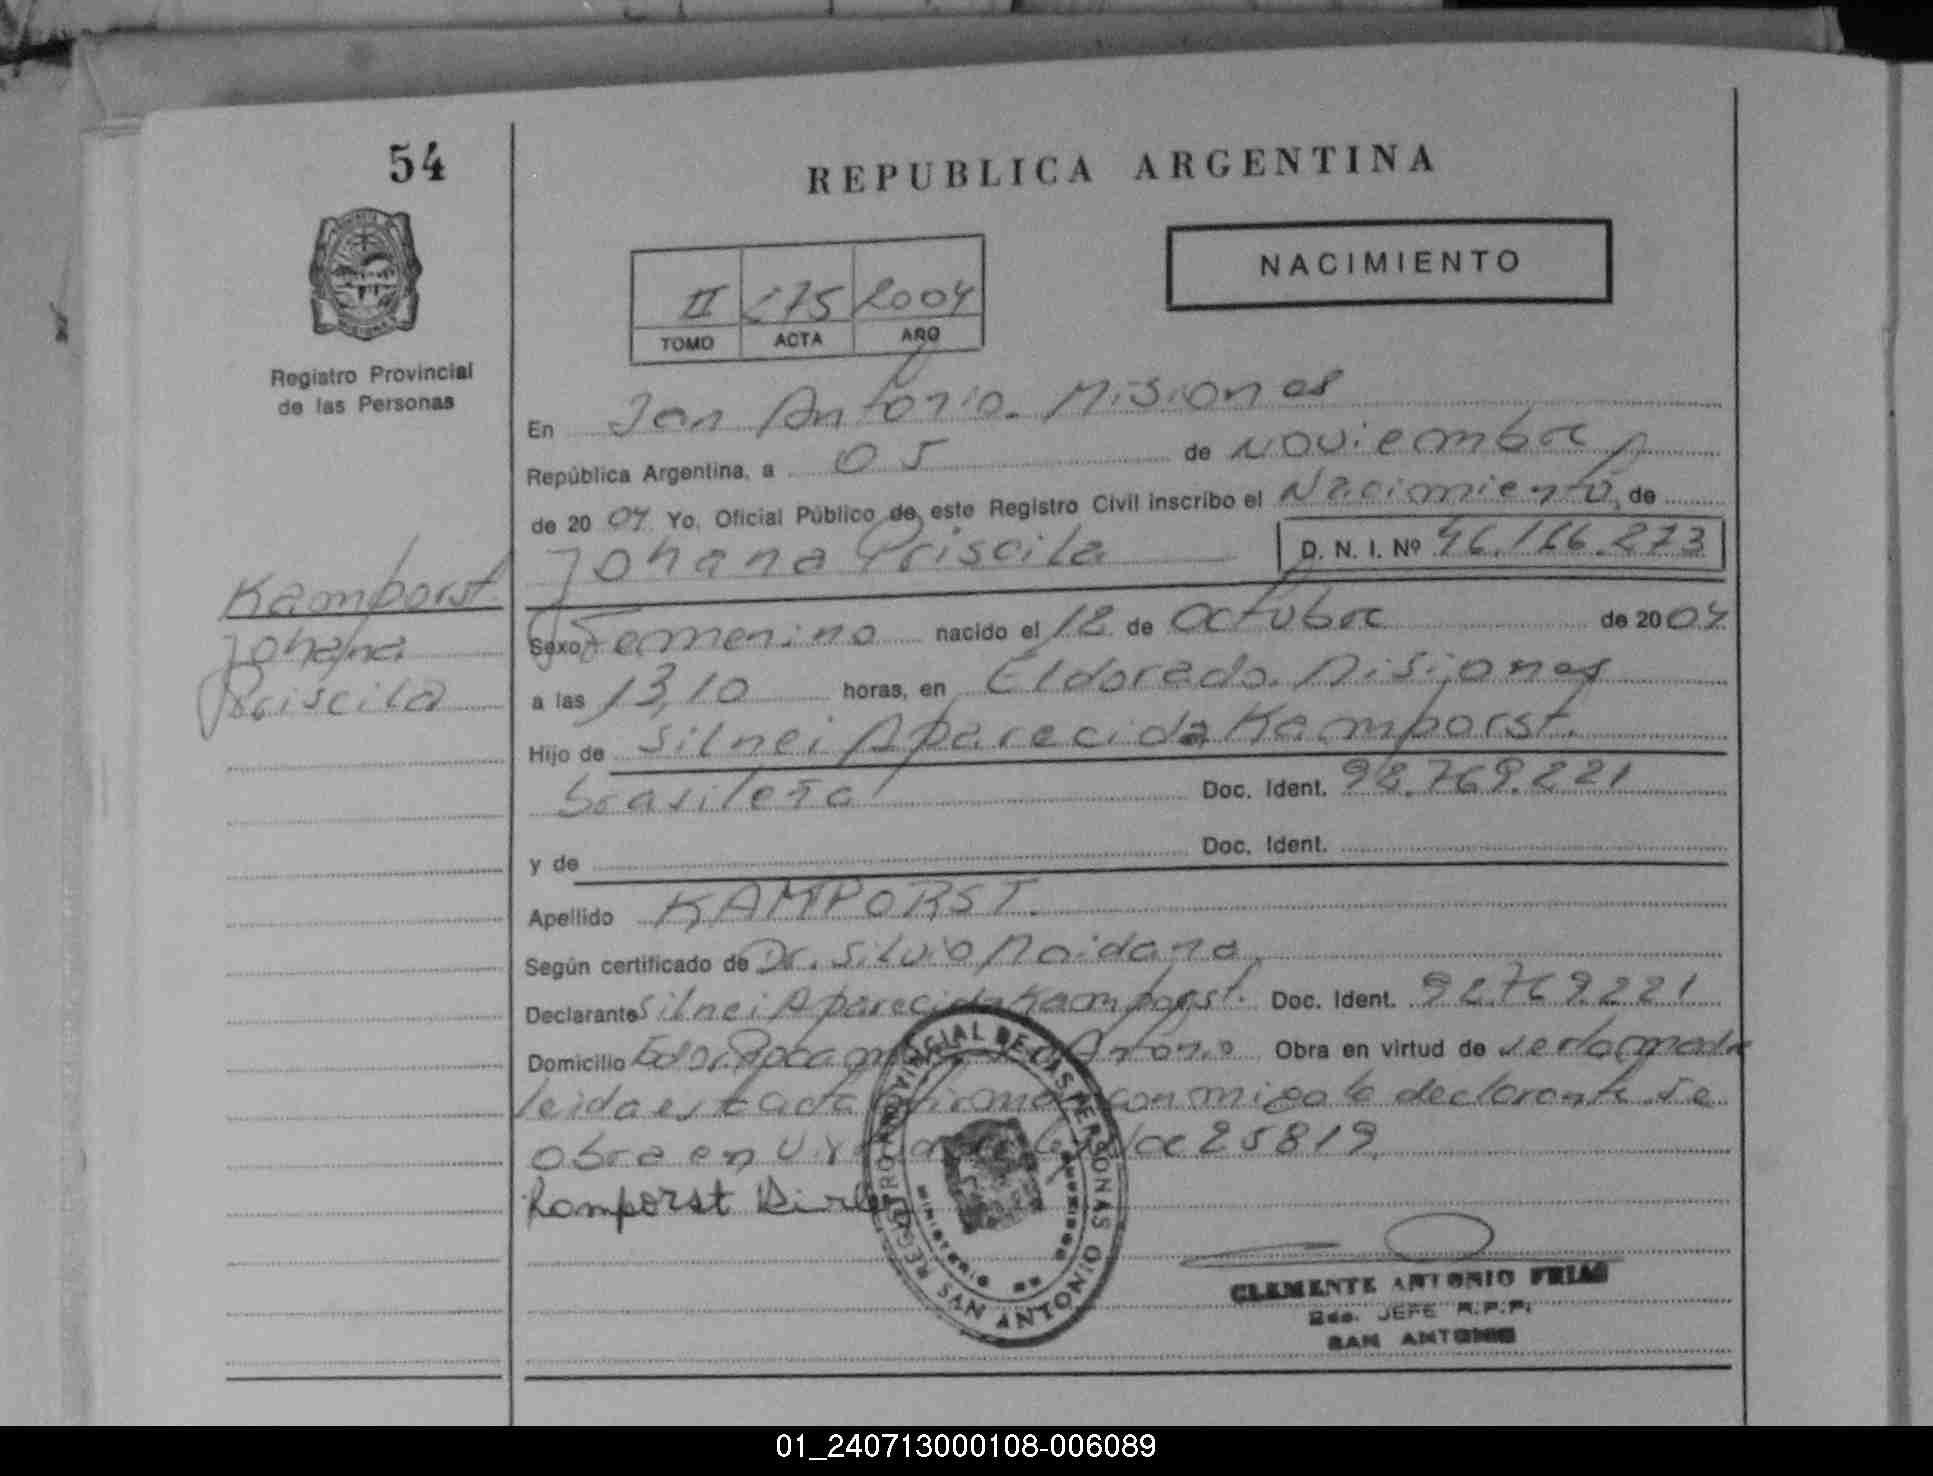 54
REPUBLICA ARGENTINA
NACIMIENTO
II 175 2004
TOMO ACTA AÑO
Registro Provincial
de las Personas
En San Antonio. Misiones
República Argentina, a 05 de Noviembre
de 2004 Yo, Oficial Público de este Registro Civil inscribo el Nacimiento, de
Johana Priscila D. N. I. Nº 46.166.273
Kamporst
Johana
Priscila
Sexo Femenino nacido el 18 de Octubre de 2004
a las 13,10 horas, en Eldorado. Misiones
Hijo de Silnei Aparecida Kamporst.
brasileña Doc. Ident. 92.769.221
y de Doc. Ident.
Apellido KAMPORST.
Según certificado de Dr. Silvio Maidana
Declarante Silnei Aparecida Kamporst. Doc. Ident. 92.769.221
Domicilio Antonio Obra en virtud de ser la madre
leida esta acta firma conmigo la declarante se
obra en 25819.
Kamporst
REGISTRO PROVINCIAL DE LAS PERSONAS
MINISTERIO DE GOBIERNO
SAN ANTONIO
CLEMENTE ANTONIO FRIAS
2do. JEFE R.P.P.
SAN ANTONIO
01_240713000108-006089